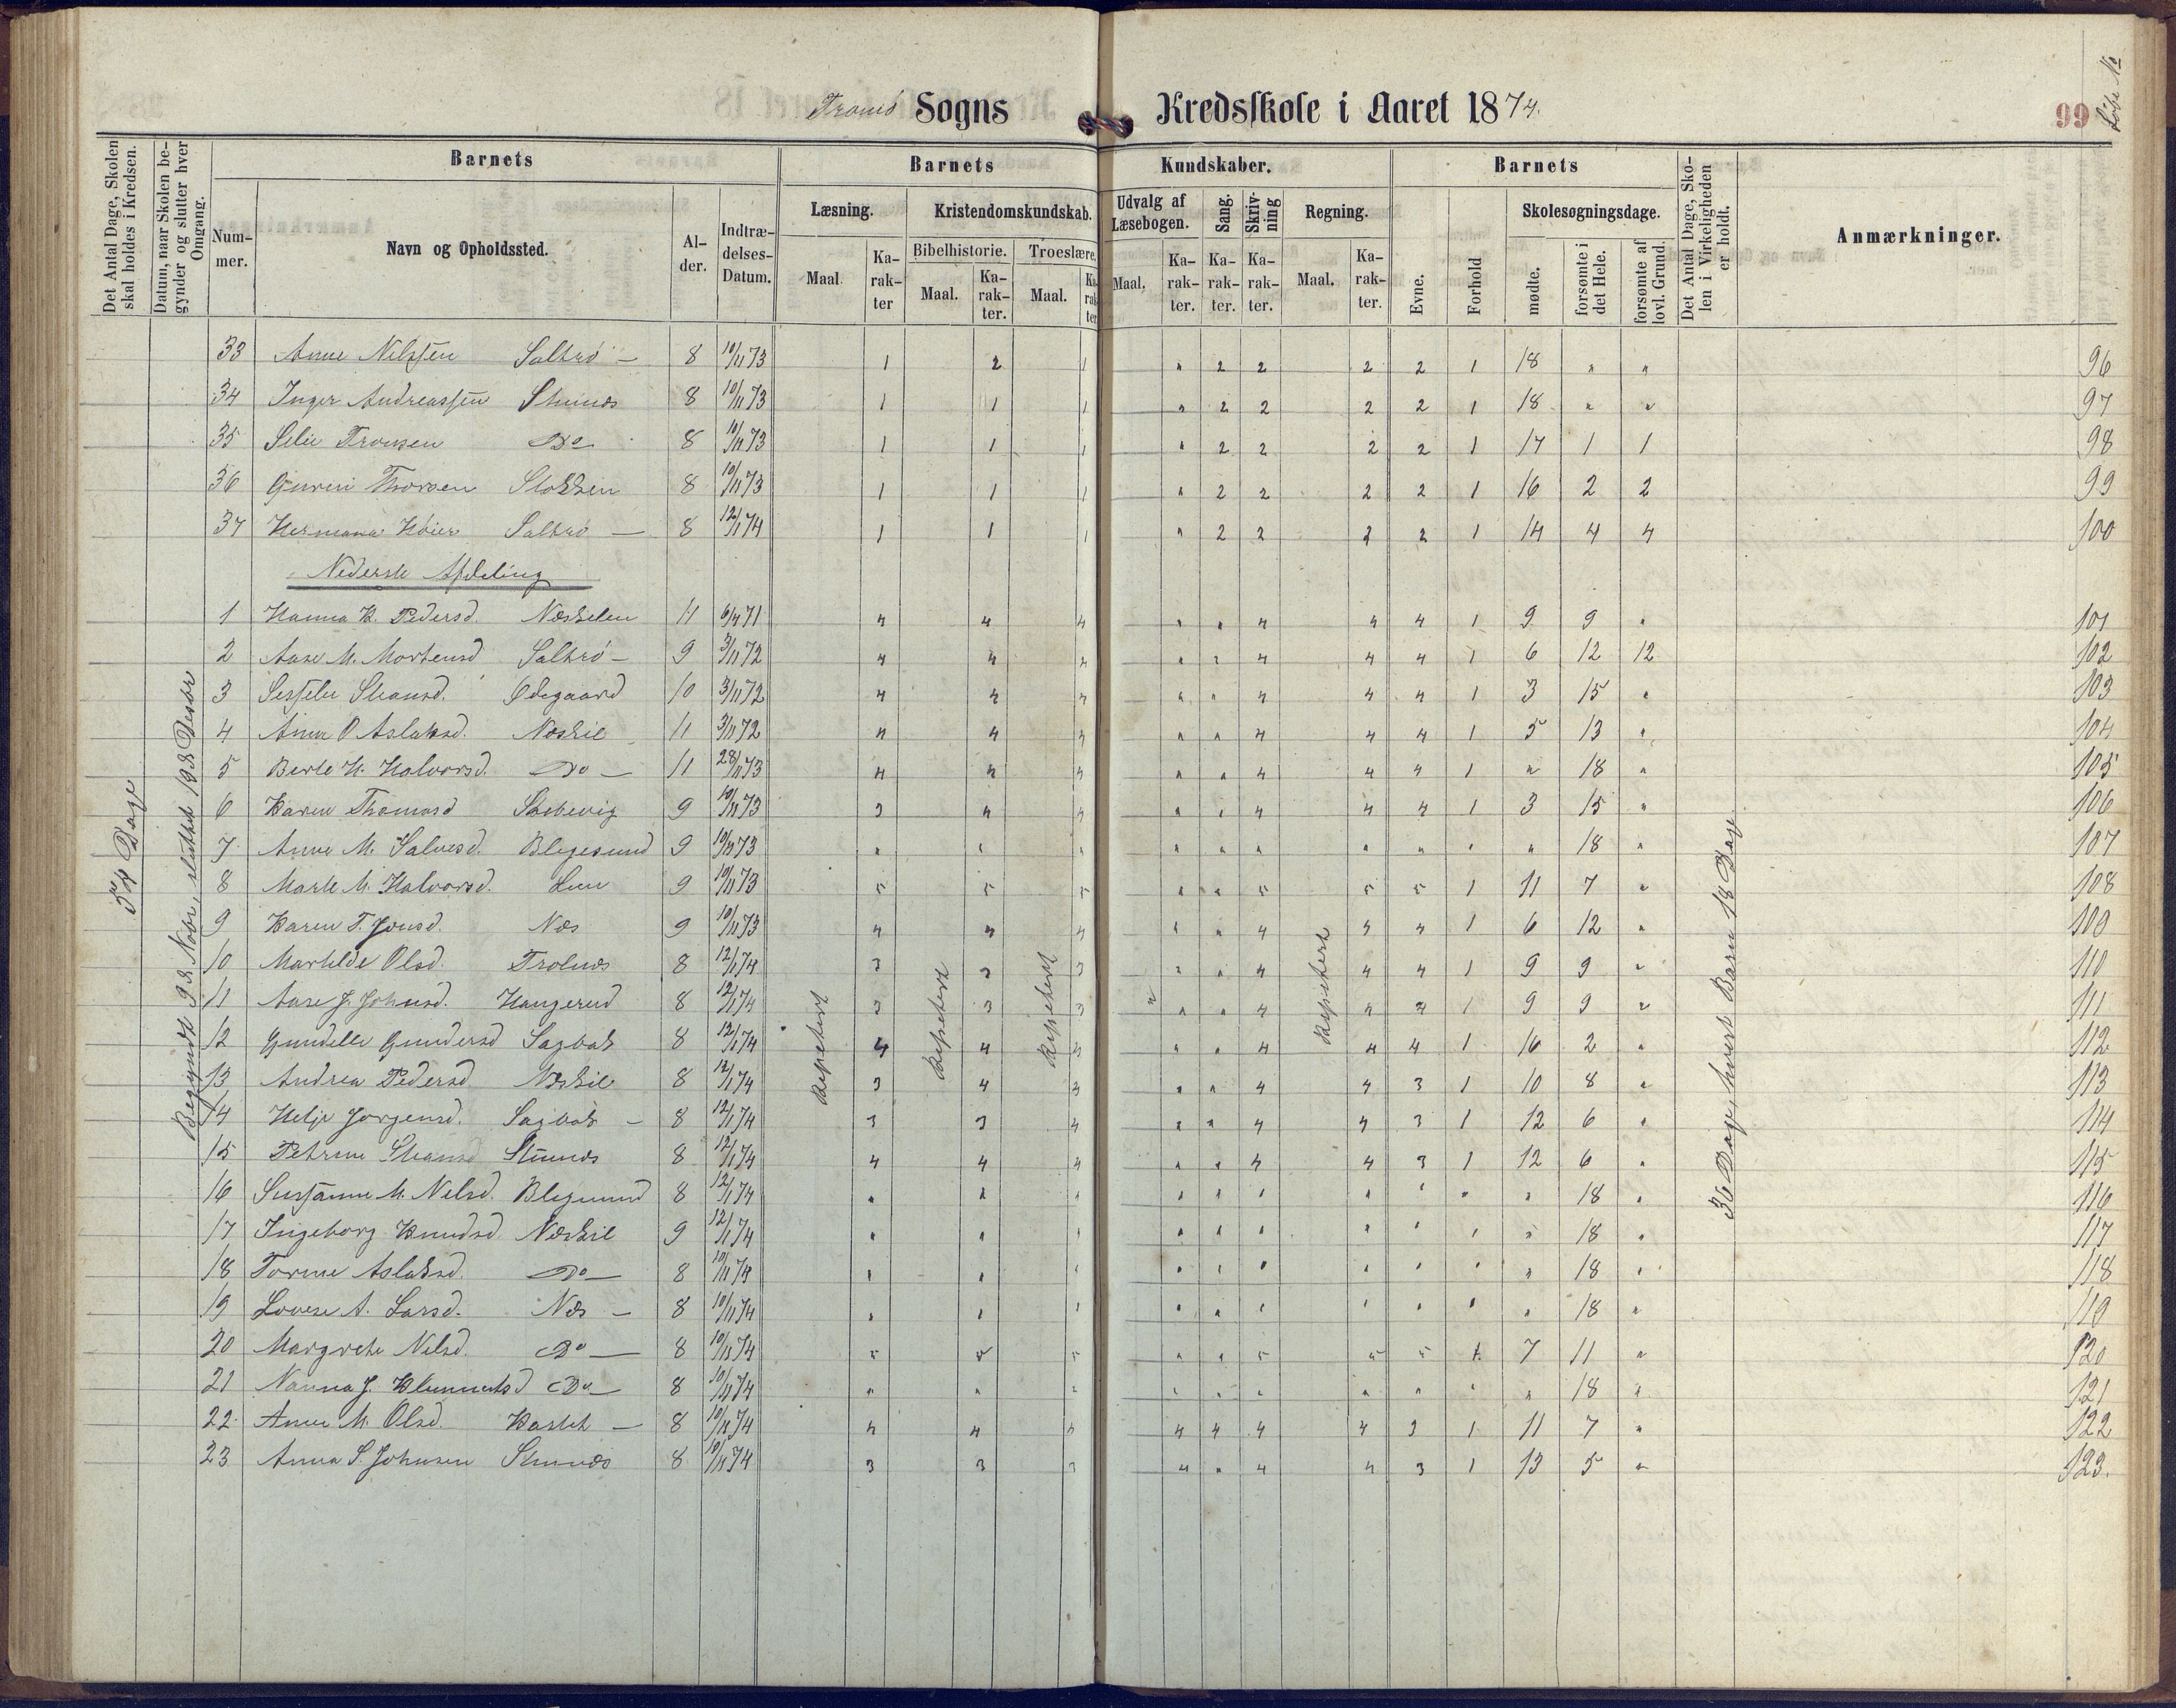 Tromö Sogns Kredsskole i Aaret 1874.
99
Löbe No
Det Antal Dage, Skolen skal holdes i Kredsen.
Datum, naar Skolen begynder og slutter hver Omgang.
Barnets
Barnets Kundskaber.
Barnets
Det Antal Dage, Skolen i Virkeligheden er holdt.
Anmærkninger.
Nummer.
Navn og Opholdssted.
Alder.
Indtrædelses-Datum.
Læsning.
Kristendomskundskab.
Udvalg af Læsebogen.
Sang.
Skrivning
Regning.
Evne.
Forhold
Skolesøgningsdage.
Bibelhistorie.
Troeslære.
Maal. Karakter Maal. Karakter. Maal. Karakter Maal. Karakter. Karakter. Karakter. Maal. Karakter.
mødte.
forsømte i det Hele.
forsømte af lovl. Grund.
33 Anne Nilssen Saltrö — 8 10/11 73 1 2 1 " 2 2 2 2 1 18 " " 96
34 Inger Andreassen Stuenes 8 10/11 73 1 1 1 " 2 2 2 2 1 18 " " 97
35 Silie Tronsen Do 8 10/11 73 1 1 1 " 2 2 2 2 1 17 1 1 98
36 Gurini Thorsen Stokken 8 10/11 73 1 1 1 " 2 2 2 2 1 16 2 2 99
37 Hermana Höier Saltrö — 8 12/1 74 1 1 1 " 2 2 2 2 1 14 4 4 100
Nederste Afdeling
1 Hanna K. Pedersd. Næskelen 11 6/4 71 4 4 4 " " 4 4 4 1 9 9 " 101
2 Aase M. Mortensd Saltrö — 9 3/11 72 4 4 4 " " 4 4 4 1 6 12 12 102
3 Ødegaard 10 3/11 72 4 4 4 " " 4 4 4 1 3 15 " 103
4 Anne O Aslaksd. Næskil 11 3/11 72 4 4 4 " " 4 4 4 1 5 13 " 104
5 Berte H. Halvorsd. Do — 11 28/11 73 4 4 4 " " 4 4 4 1 " 18 " 105
6 Karen Thomasd 9 10/11 73 3 4 4 " " 4 4 4 1 3 15 " 106
7 Anne M. Salvesd. Blegesund 9 10/11 73 " " " " " " " " " " 18 " 107
8 Marte M. Halvorsd. Lun 9 10/11 73 5 5 5 " " 5 5 5 1 11 7 " 108
9 Karen T. Jensd. Næs 9 10/11 73 4 4 4 " " 4 4 4 1 6 12 " 109
10 Mathilde Olsd. Trolnæs 8 12/1 74 3 3 3 " " 4 4 4 1 9 9 " 110
11 Aase J. Johnsd. Hangerud 8 12/1 74 3 3 3 " " 4 4 4 1 9 9 " 111
12 Gundelle Gundersd Sagbak 8 12/1 74 4 4 4 " " 4 4 4 1 16 2 " 112
13 Andrea Pedersd Næskil 8 12/1 74 3 4 3 " " 4 4 3 1 10 8 " 113
14 Helje Jorgensd. Sagbak — 8 12/1 74 3 3 4 " " 4 4 3 1 12 6 " 114
15 Petrine Stuenes 8 12/1 74 4 4 4 " " 4 4 3 1 12 6 " 115
16 Susanne M. Nelsd. Blegesund 8 12/1 74 " " " " " " " " " " 18 " 116
17 Ingeborg Knudsd Næskil 9 12/1 74 " " " " " " " " " " 18 " 117
18 Torine Aslaksd. Do — 8 10/11 74 " " " " " " " " " " 18 " 118
19 Lovise A. Larsd. Næs — 8 10/11 74 " " " " " " " " " " 18 " 119
20 Margrete Nilsd. Do — 8 10/11 74 5 5 5 " " 5 5 5 1. 7 11 " 120
21 Nanna J. Do — 8 10/11 74 " " " " " " " " " " 18 " 121
22 Anne M. Olsd. — 8 10/11 74 4 4 4 4 4 4 4 3 1 11 7 " 122
23 Anna S. Johnsen Stuenes 8 10/11 74 3 3 3 4 " 4 4 3 1 13 5 " 123.
54 Dage
Begyndt 9de Novbr, sluttet 19de Decbr
Repetert
Repetert
Repetert
"
Repetert
36 Dage, hvert Barn 18 Dage